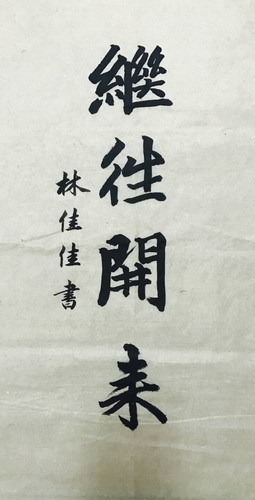 繼往開来
林佳佳書